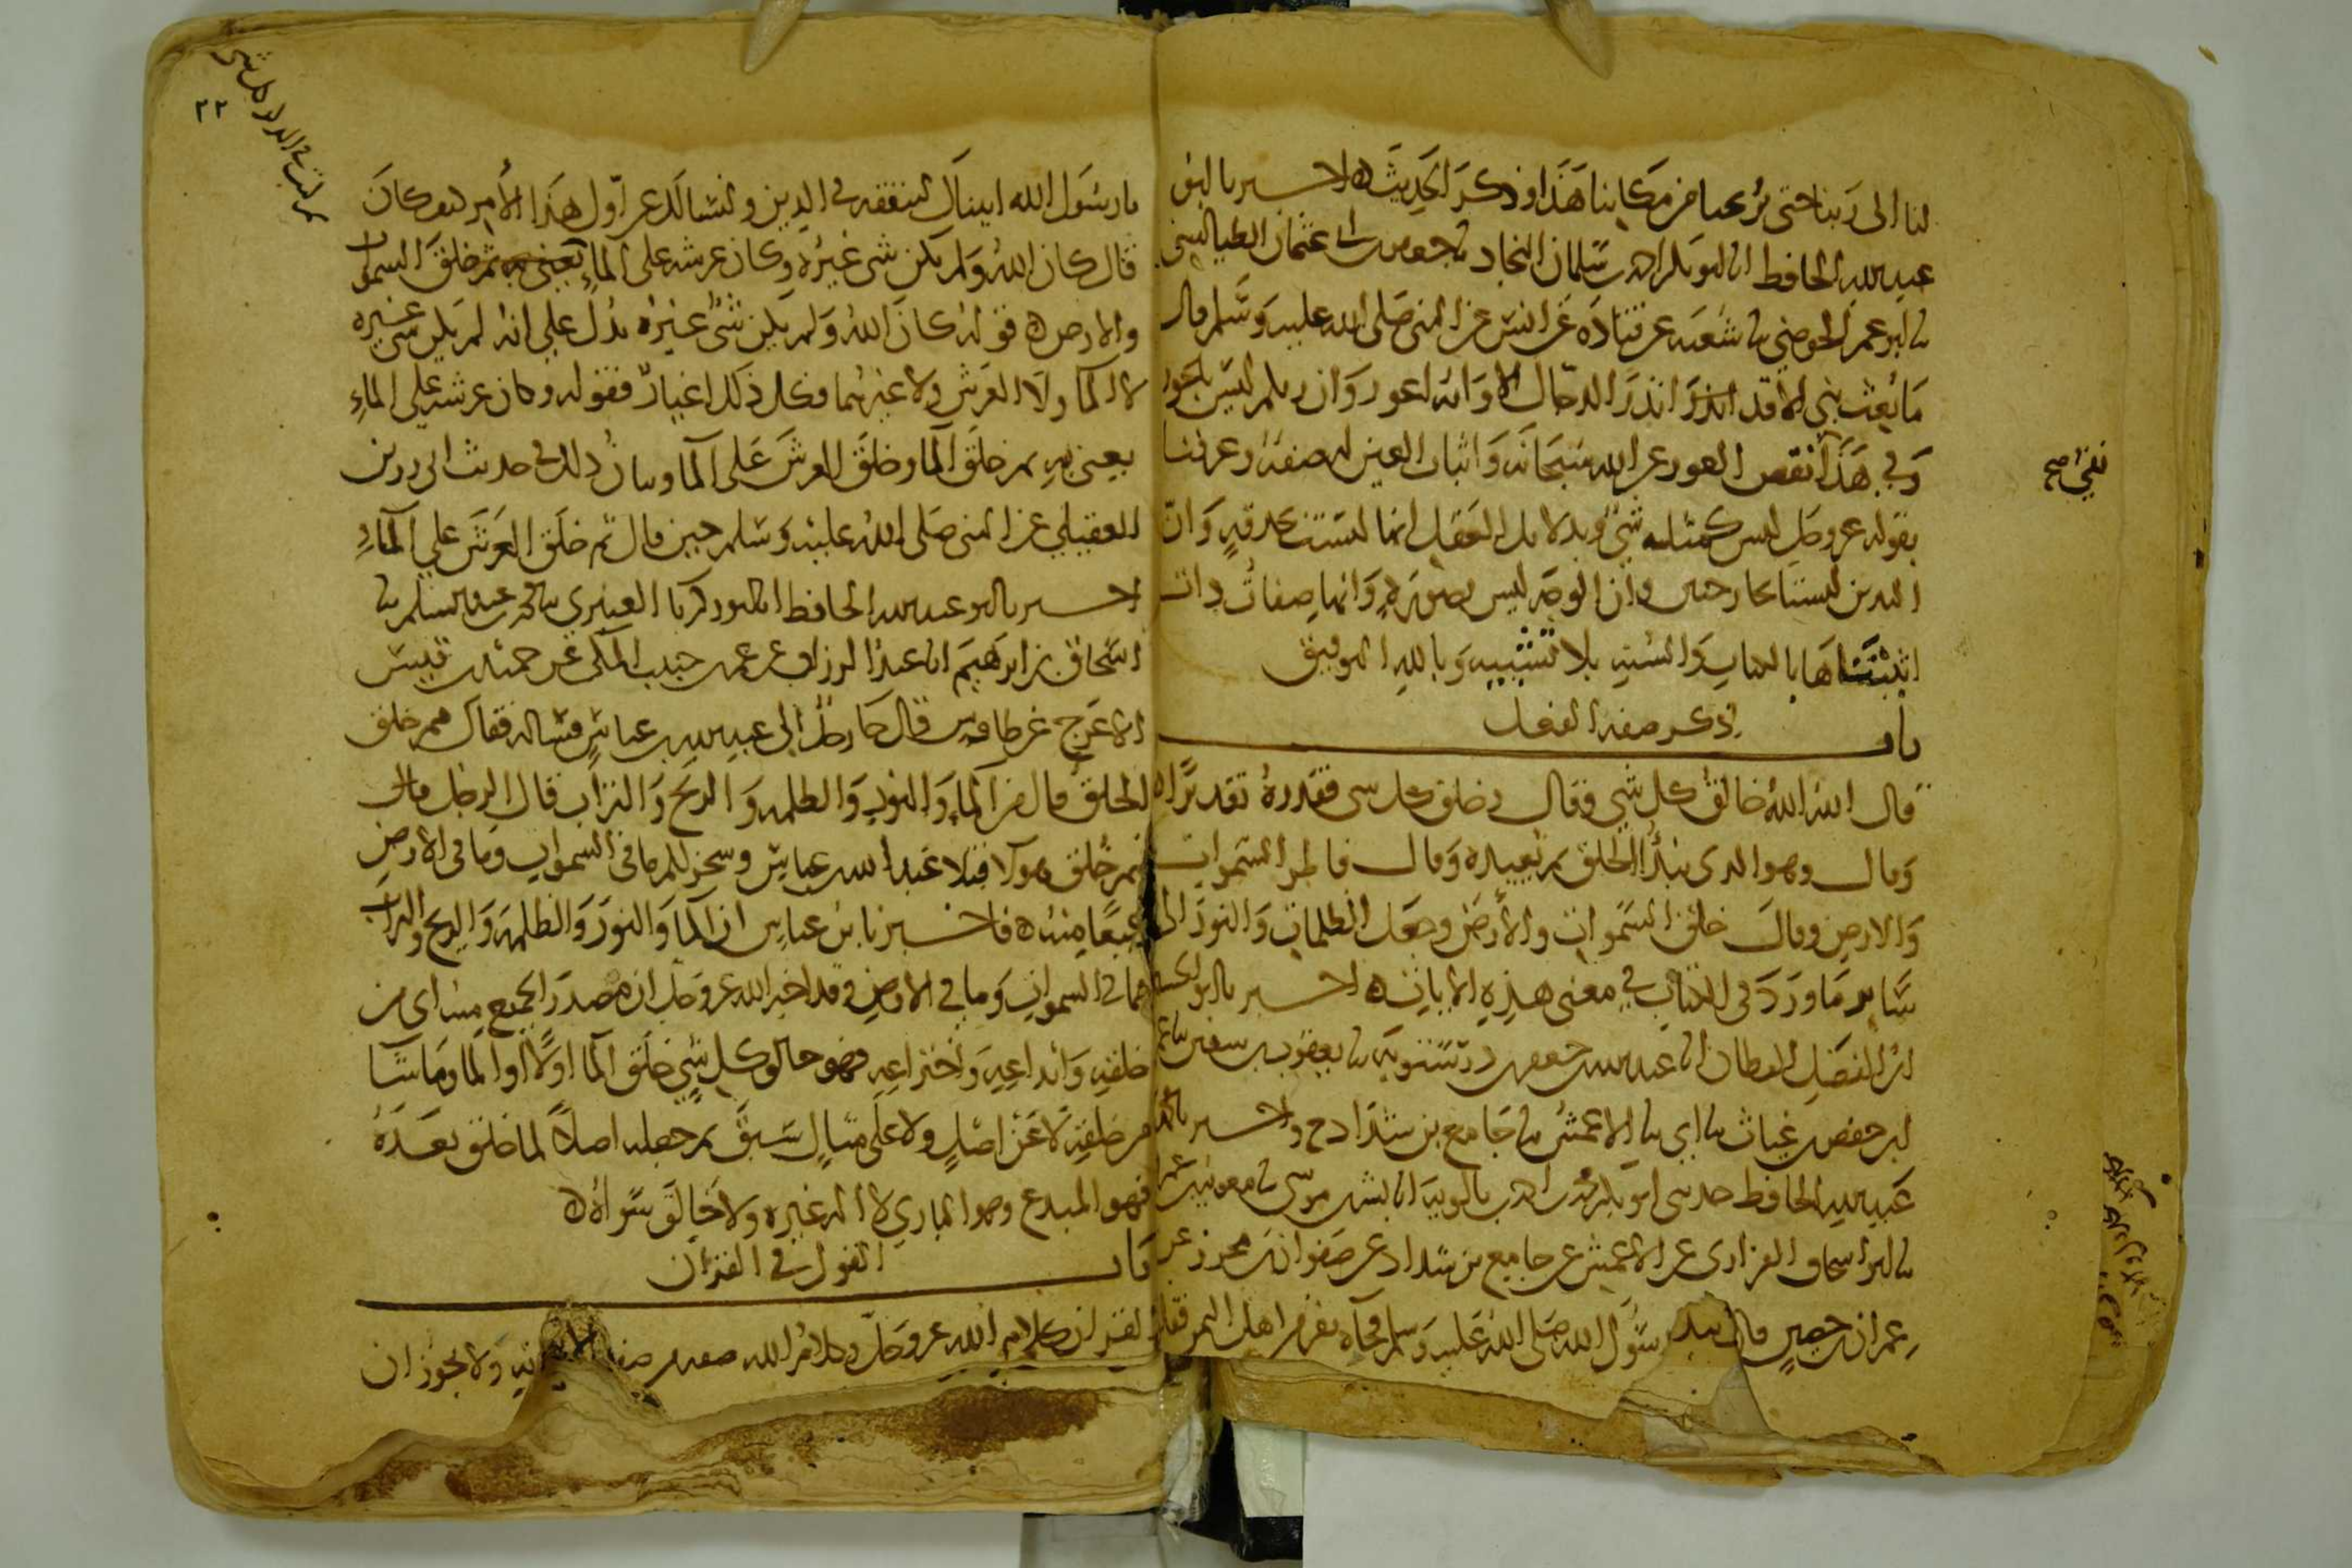 لنا الى ربنا حتى يريحنا من مكاننا هذا وذكر الحديث ه اخبرنا ابو
عبد الله الحافظ انا ابو بكر احمد بن سلمان النجاد نا جعفر بن ابي عثمان الطيالسي
نا ابو عمر الحوضي نا شعبه عن قتاده عن انس عن النبي صلى الله عليه وسلم قال
ما بعث نبي الا قد انذر الدجال الا وانه اعور وان ربكم ليس باعور
وفي هذا نقص العور عن الله سبحانه واثبات العين له صفة وعرفنا
نفي صح
بقوله عز وجل ليس كمثله شي وبدلايل العقل انها ليست بحدقة وان
اليدين ليستا بجارحتين وان الوجه ليس بصورة وانها صفات ذات
اثبتناها بالكتاب والسنة بلا تشبيه وبالله التوفيق
باب ذكر صفة الفعل
قال الله الله خالق كل شي وقال وخلق كل شي فقدره تقديرا ه
وقال وهو الذي يبدأ الخلق ثم يعيده وقال فاطر السموات
والارض وقال خلق السموات والارض وجعل الظلمات والنور الى
ساير ما ورد في الكتاب في معنى هذه الايات ه اخبرنا ابو الحسين
ابن الفضل القطان انا عبد الله بن جعفر بن درستويه نا يعقوب بن سفين نا عمر
ابن حفص بن غياث نا ابي نا الاعمش نا جامع بن شداد ح واخبرنا ابو
عبد الله الحافظ حدثني ابو بكر محمد بن احمد بن بالويه انا بشر بن موسى نا معوية بن عمرو
نا ابو اسحاق الفزاري عن الاعمش عن جامع بن شداد عن صفوان بن محرز عن
عمران بن حصين قال رسول الله صلى الله عليه وسلم فجاه نفر من اهل اليمن فقالوا
٢٢
يا رسول الله اتيناك لنتفقه في الدين ونسالك عن اول هذا الامر كيف كان
قال كان الله ولم يكن شي غيره وكان عرشه على الماء ثم خلق السموات
والارض ه قوله كان الله ولم يكن شي غيره يدل على انه لم يكن شي غيره
لا الما ولا العرش ولا غيرهما فكل ذلك اغيار فقوله وكان عرشه على الماء
يعني به ثم خلق الما وخلق العرش على الما وبيان ذلك في حديث ابي رزين
العقيلي عن النبي صلى الله عليه وسلم حين قال ثم خلق العرش على الماء
اخبرنا ابو عبد الله الحافظ انا ابو زكريا العنبري نا محمد بن عبد السلم نا
اسحاق بن ابراهيم انا عبد الرزاق عن عمر بن حبيب المكي عن حميد بن قيس
الاعرج عن طاوس قال جا رجل الى عبد الله بن عباس فساله فقال مم خلق
الخلق قال من الماء والنور والظلمة والريح والتراب قال الرجل
فمم خلق هولا فتلا عبد الله بن عباس وسخر لكم ما في السموات وما في الارض
جميعا منه ه فاخبرنا ابن عباس ان الما والنور والظلمة والريح والتراب
مما في السموات وما في الارض وقد اخبر الله عز وجل ان مصدر الجميع منه اي من
خلقه وابداعه واختراعه فهو خالق كل شي خلق الما اولا او الما وما شا
من خلقه لا عن اصل ولا على مثال سبق ثم جعله اصلا لما خلق بعده
فهو المبدع وهو الباري لا اله غيره ولا خالق سواه ه
باب القول في القران
القران كلام الله عز وجل وكلام الله صفة من صفات ولا يجوز ان